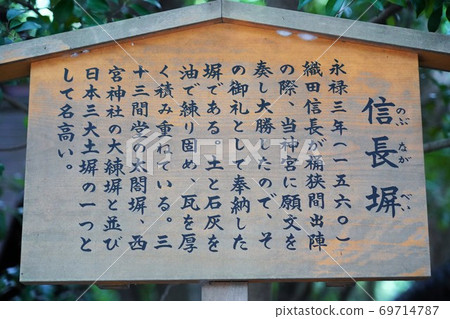 信長塀
のぶ なが べい
永禄三年(一五六〇)
織田信長が桶狭間出陣
の際、当神宮に願文を
奏し大勝したので、そ
の御礼として奉納した
塀である。土と石灰を
油で練り固め、瓦を厚
く積み重ねている。三
十三間堂の太閤塀、西
宮神社の大練塀と並び
日本三大土塀の一つと
して名高い。
69714787